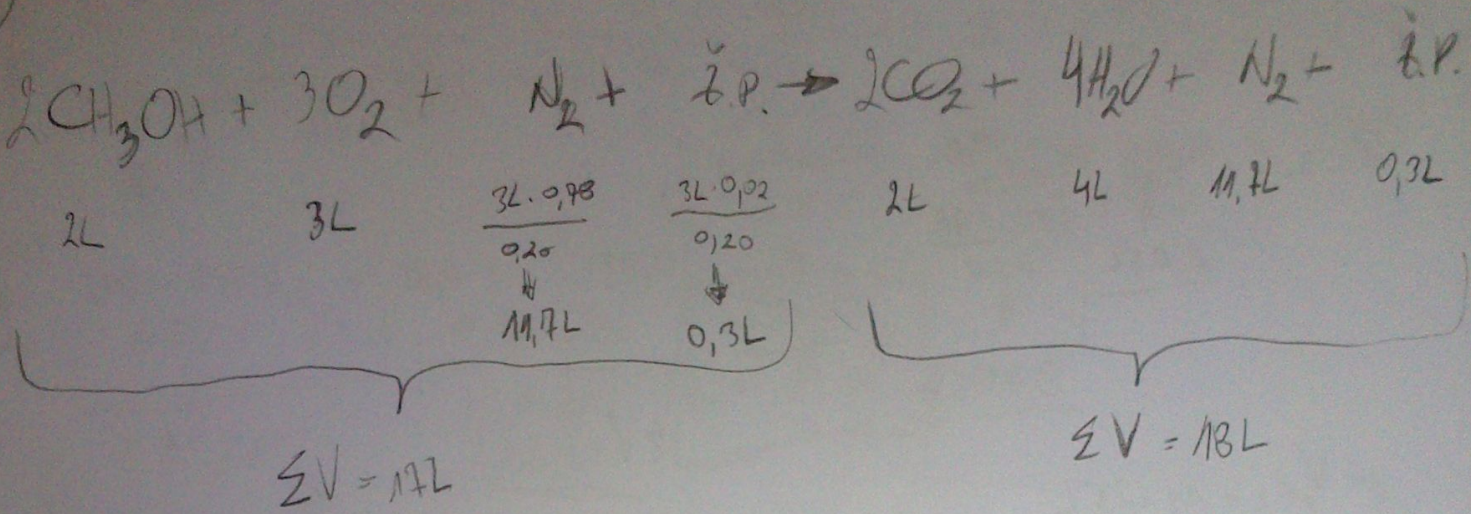 2CH₃OH + 3O₂ + N₂ + ž.p. → 2CO₂ + 4H₂O + N₂ + ž.p.
2L 3L 3L·0,78/0,20 3L·0,02/0,20 2L 4L 11,7L 0,3L
↓ ↓
11,7L 0,3L
ΣV = 17L ΣV = 18L